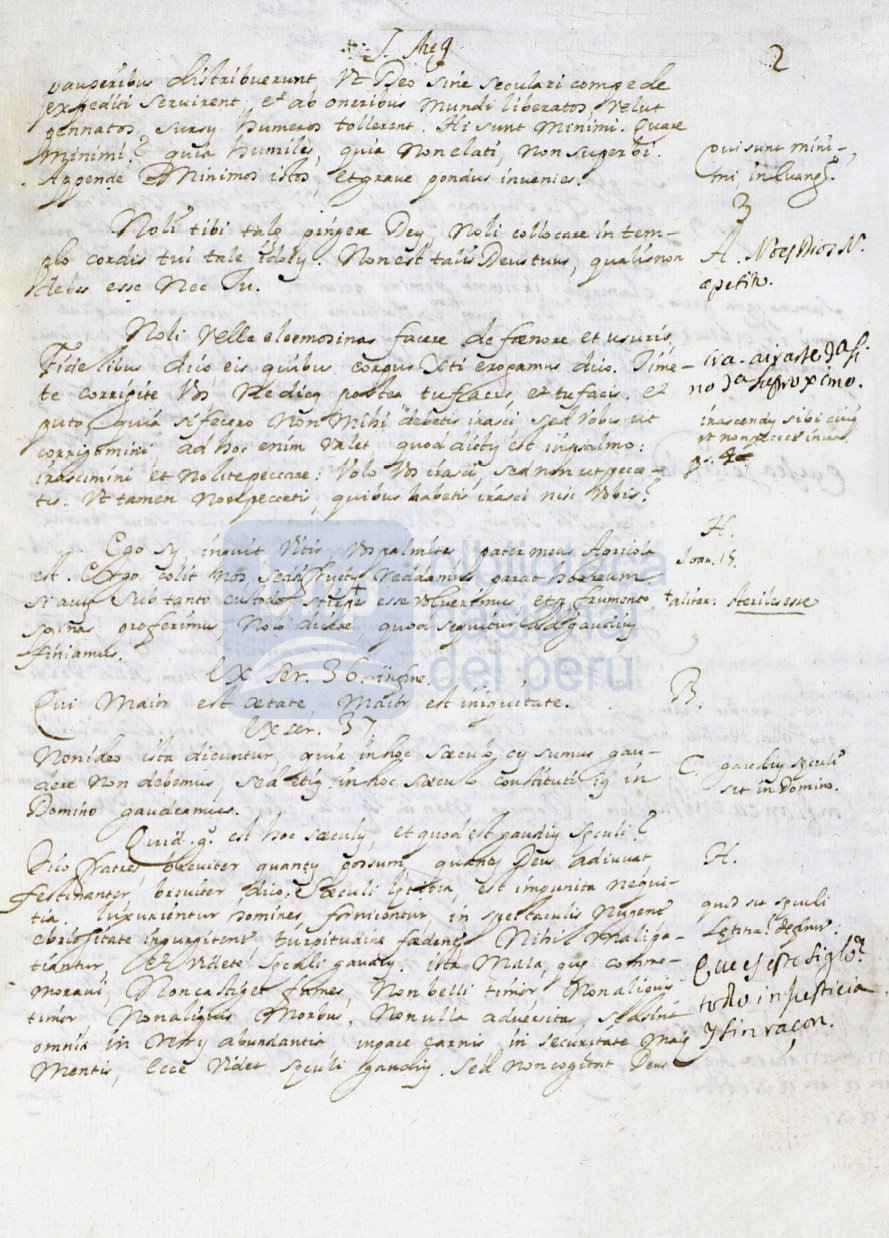 J. Aug
2
pauperibus distribuerunt, Vt Deo sine seculari compede
expediti servirent, et ab oneribus mundi liberatos, velut
pennatos, sursũ humeros tollerent. Hi sunt minimi. Quare
minimi? quia humiles, quia non elati, non superbi.
Appende Minimos istos, et grave pondus invenies.
Qui sunt mini-
mi, in Euangᵒ.
3
Noli tibi talẽ pingere Deũ, Noli collocare in tem-
plo cordis tui tale idolũ. Non est talis Deus tuus, qualis non
debes esse Nec Tu.
A. No es Dios N.
apetito.
Noli Velle eleemosinas facere de fœnore et usuris,
Fidelibus dico eis quibus corpus Xti erogamus dico. Time-
te corrigite Vos, Ne dicã postea tu facis, et tu facis. et
puto, quia si fecero Non Mihi debetis irasci sed Vobis ut
corrigamini, ad hoc enim Valet quod dictũ est in psalmo:
irascimini et Nolite peccare: Volo Vos irasci, sed non ut pecce-
tis. Vt tamen Non peccetis, quibus habetis irasci nisi Vobis?
ira. airaste
no proximo.
irascendũ sibi
ut non peccet
ps. 4
Ego sũ, inquit Vitis, Vos palmites pater meus Agricola
est. Ergo colit Nos, sed si fructũ reddamus parat horreum
si autẽ sub tanto custode steriles esse Voluerimus, et p frumento
spinas proferimus, Nolo dicere, quod sequitur ad gaudiũ
finiamus.
H.
Joan. 15.
aliter: steriles esse
Ex ser. 36. in fine.
Qui Maior est ætate, Maior est iniquitate.
B.
Ex ser. 37.
Non ideo ista dicuntur, quia in hoc sæculo cũ sumus gau-
dere non debemus, sed etiã in hoc sæculo constituti iã in
Domino gaudeamus.
C. gaudiũ sæculi
sit in Domino.
Quid gᵒ est hoc sæculũ, et quod est gaudiũ sæculi?
Dico fratres breviter quantũ possum, quantũ Deus adiuvat
festinanter, breviter dico. Sæculi lætitia, est impunita nequi-
tia. luxurientur homines, fornicentur, in spectaculis Nugent
ebriositate ingurgitent turpitudine fœdent, Nihil Mali pa-
tiantur, et videte sæculi gaudiũ. ista Mala, quæ comme-
moravi, Non castiget fames, Non belli timor, Non aliquis
timor, Non aliquis Morbus, Non ulla adversitas, sed sint
omnia in rerũ abundantia in pace carnis in securitate malæ
Mentis, Ecce Videt sæculi gaudiũ. Sed non cogitat Deus
H.
quid sit sæculi
Lætitia
Que es este siglo?
todo injusticia
y sin raçon.
biblioteca
nacional
del perú